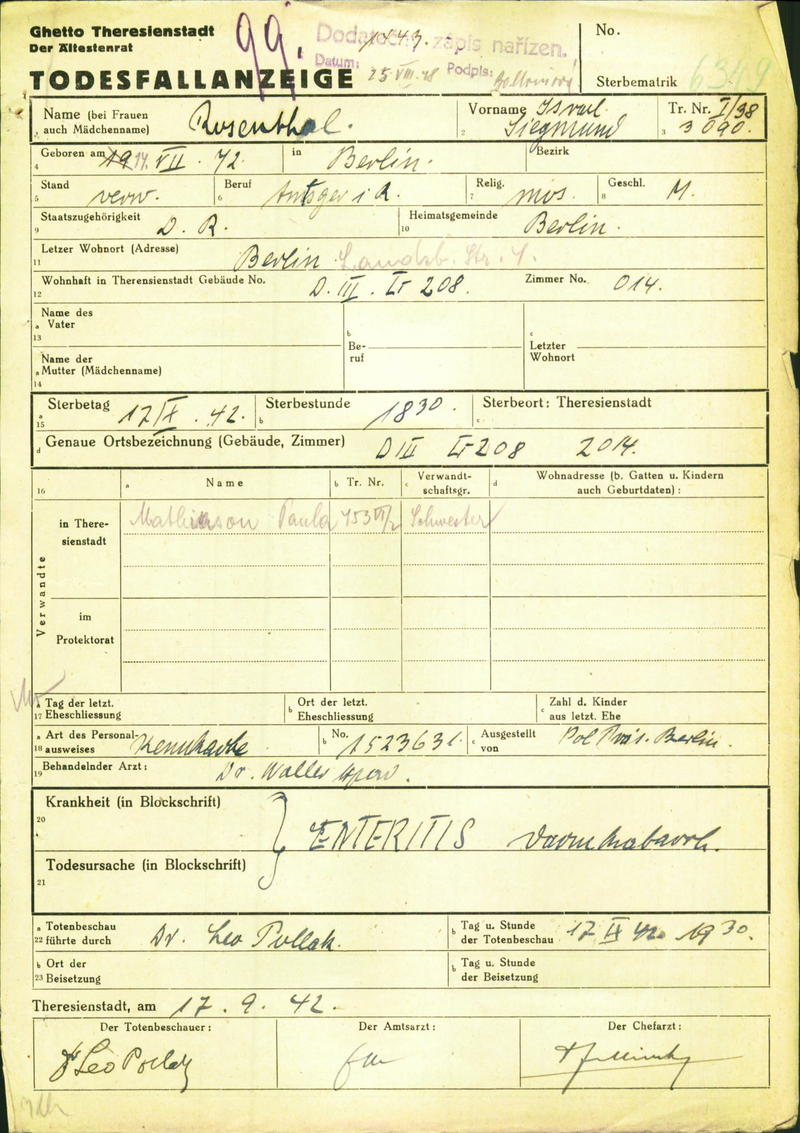 Ghetto Theresienstadt
Der Ältestenrat
gg.
1443.
Dodatečný zápis nařízen.
Datum: 25 VIII. 48 Podpis:
No.
TODESFALLANZEIGE
Sterbematrik
Name (bei Frauen auch Mädchenname) Rosenthal.
Vorname Israel Siegmund
Tr. Nr. I/38 3090.
Geboren am VII. 72 in Berlin. Bezirk
Stand verw. Beruf Amtsger i R. Relig. mos. Geschl. M.
Staatszugehörigkeit D. R. Heimatsgemeinde Berlin.
Letzer Wohnort (Adresse) Berlin Landsb. Str.
Wohnhaft in Theresienstadt Gebäude No. D. III. 208. Zimmer No. 014.
Name des Vater
Beruf
Letzter Wohnort
Name der Mutter (Mädchenname)
Sterbetag 17 IX. 42. Sterbestunde 1830. Sterbeort: Theresienstadt
Genaue Ortsbezeichnung (Gebäude, Zimmer) D III 208 2014.
16 a Name b Tr. Nr. c Verwandtschaftsgr. d Wohnadresse (b. Gatten u. Kindern auch Geburtdaten):
Verwandte
in Theresienstadt Paula Schwester
im Protektorat
Tag der letzt. Eheschliessung
Ort der letzt. Eheschliessung
Zahl d. Kinder aus letzt. Ehe
Art des Personalausweises Kennkarte No. 1523631. Ausgestellt von Pol Präs. Berlin.
Behandelnder Arzt: Dr.
Krankheit (in Blockschrift)
ENTERITIS Darmkatarrh.
Todesursache (in Blockschrift)
Totenbeschau führte durch Dr. Leo Pollak. Tag u. Stunde der Totenbeschau 17 IX 42. 1930.
Ort der Beisetzung
Tag u. Stunde der Beisetzung
Theresienstadt, am 17. 9. 42.
Der Totenbeschauer: Der Amtsarzt: Der Chefarzt:
Dr Leo Pollak